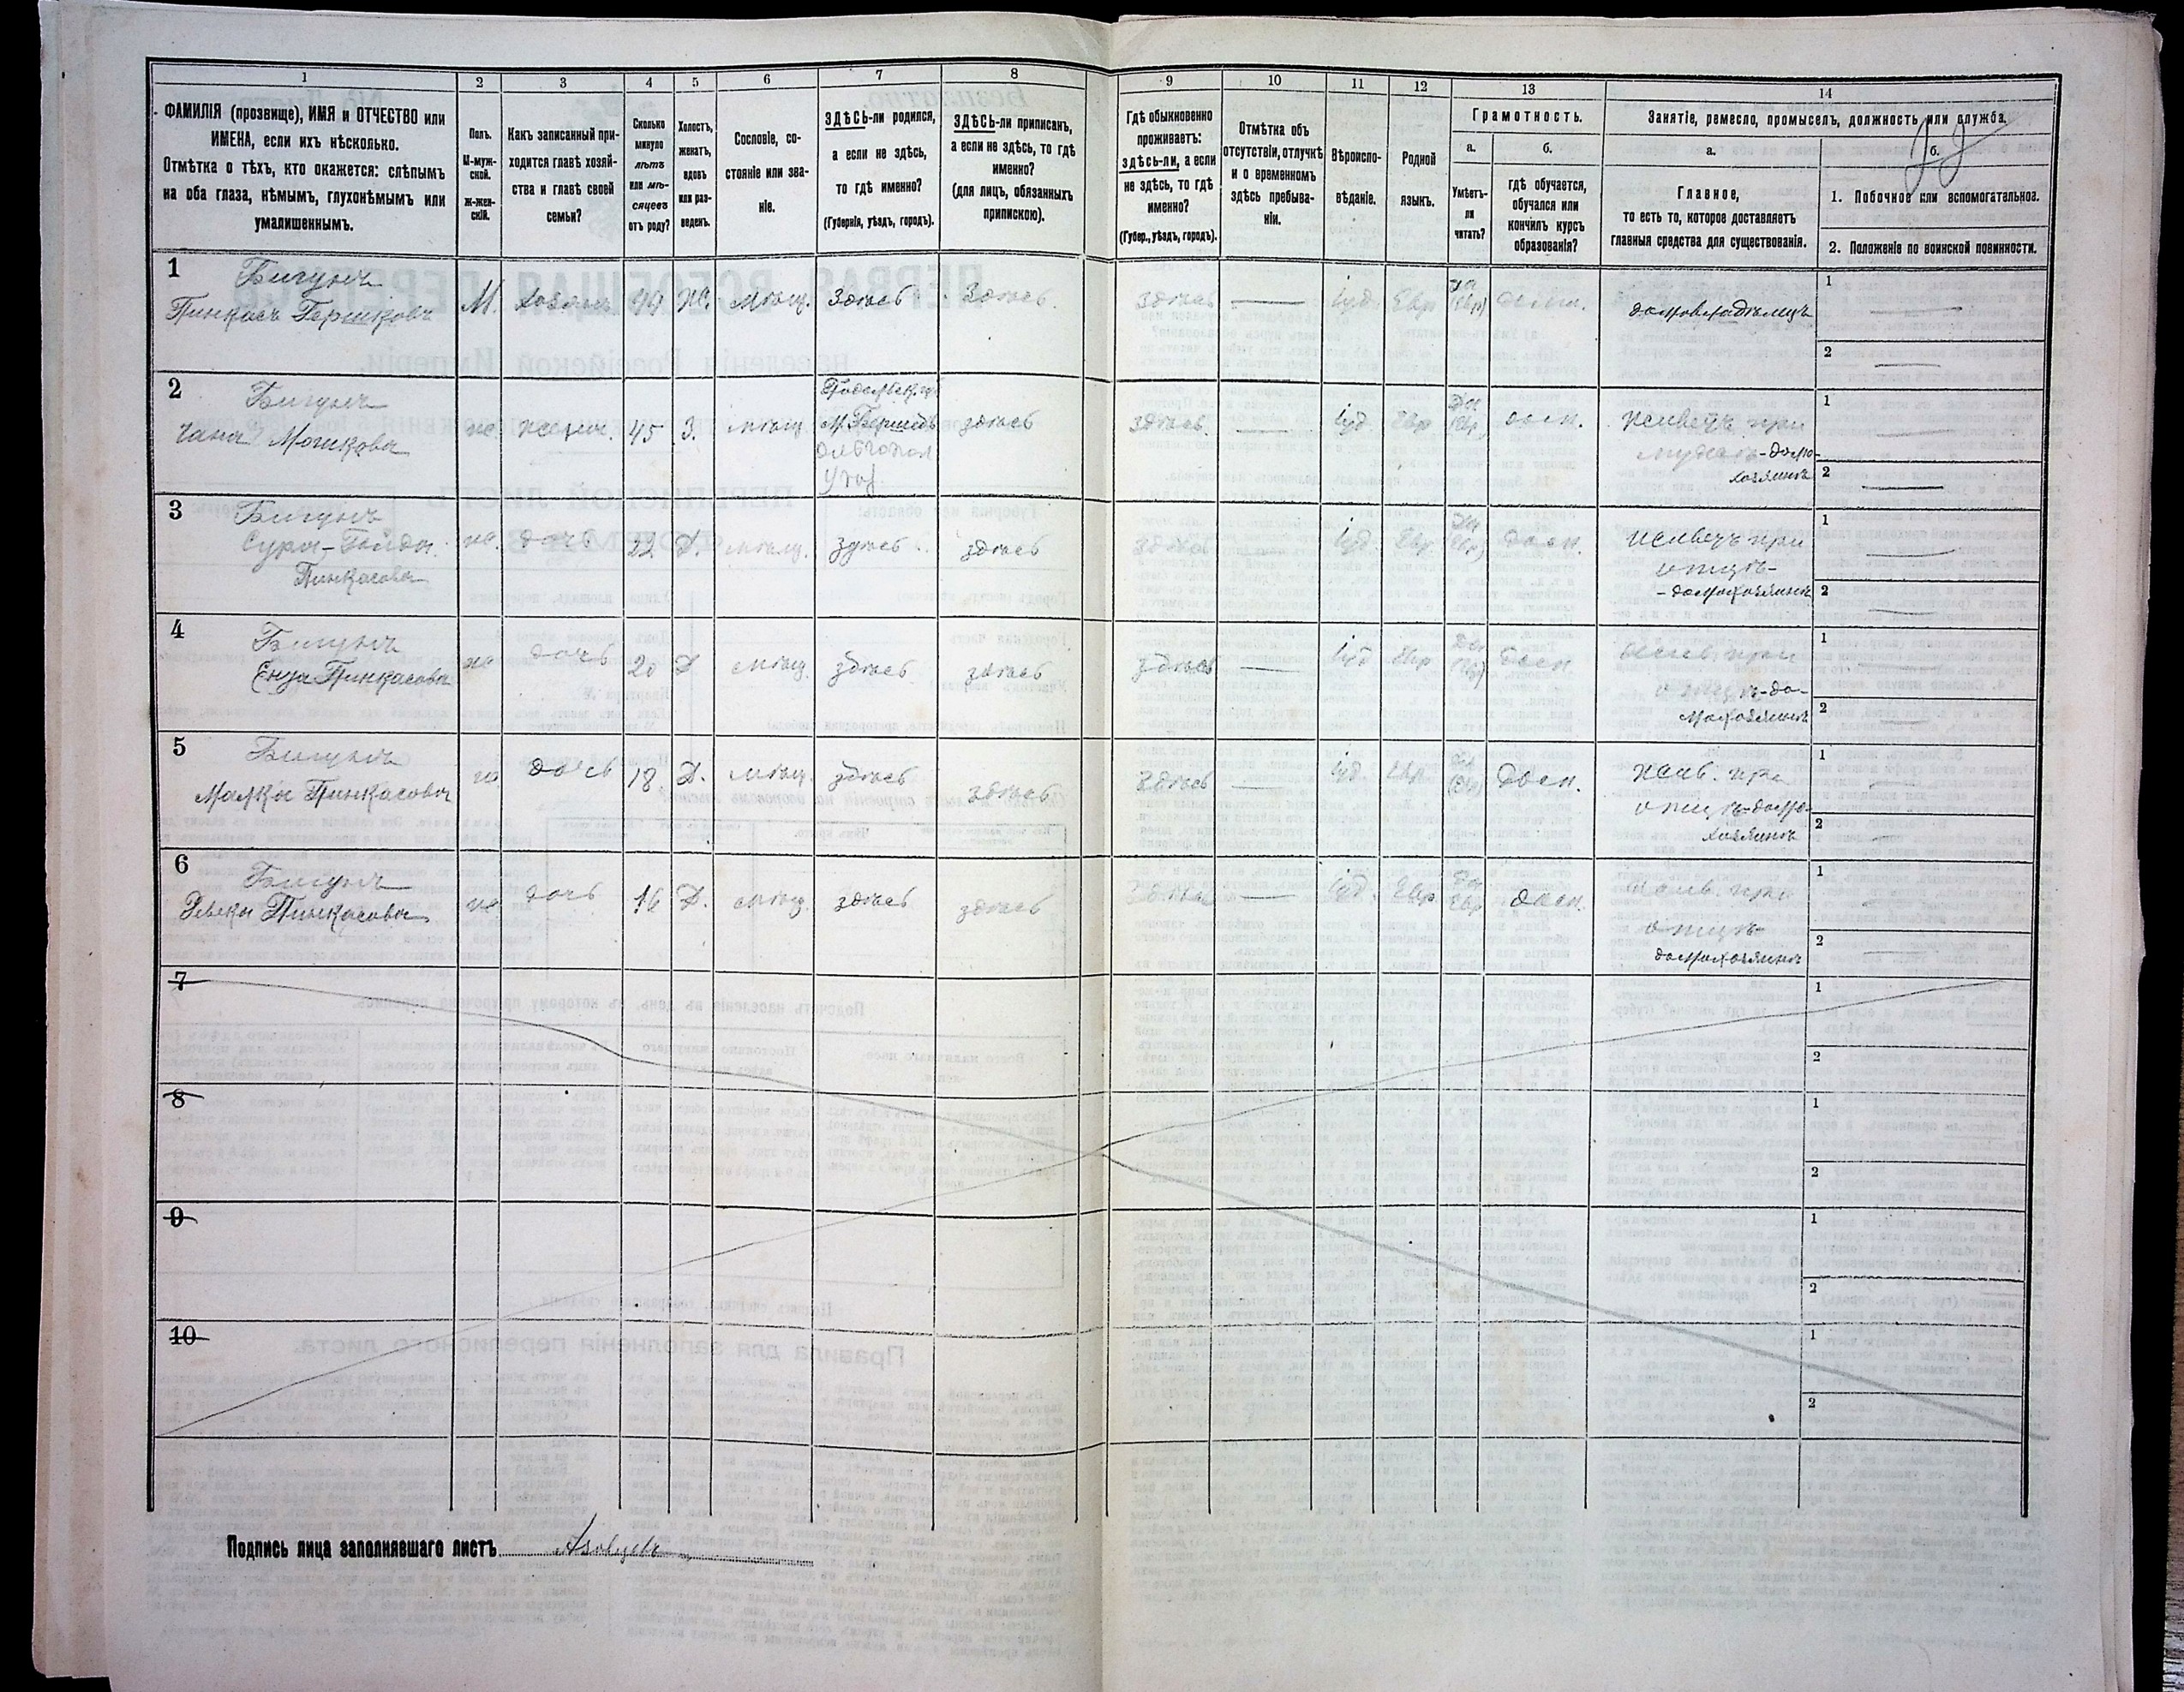 1 2 3 4 5 6 7 8 9 10 11 12 13 14
ФАМИЛІЯ (прозвище), ИМЯ и ОТЧЕСТВО или
ИМЕНА, если ихъ нѣсколько.
Отмѣтка о тѣхъ, кто окажется: слѣпымъ
на оба глаза, нѣмымъ, глухонѣмымъ или
умалишеннымъ.
Полъ.
М-муж-
ской.
Ж-жен-
скій.
Какъ записанный при-
ходится главѣ хозяй-
ства и главѣ своей
семьи?
Сколько
минуло
лѣтъ
или мѣ-
сяцевъ
отъ роду?
Холостъ,
женатъ,
вдовъ
или раз-
веденъ.
Сословіе, со-
стояніе или зва-
ніе.
ЗДѢСЬ-ли родился,
а если не здѣсь,
то гдѣ именно?
(Губернія, уѣздъ, городъ).
ЗДѢСЬ-ли приписанъ,
а если не здѣсь, то гдѣ
именно?
(для лицъ, обязанныхъ
припискою).
Гдѣ обыкновенно
проживаетъ:
здѣсь-ли, а если
не здѣсь, то гдѣ
именно?
(Губер., уѣздъ, городъ).
Отмѣтка объ
отсутствіи, отлучкѣ
и о временномъ
здѣсь пребыва-
ніи.
Вѣроиспо-
вѣданіе.
Родной
языкъ.
Грамотность.
а.
Умѣетъ-
ли
читать?
б.
гдѣ обучается,
обучался или
кончилъ курсъ
образованія?
Занятіе, ремесло, промыселъ, должность или служба.
а.
Главное,
то есть то, которое доставляетъ
главныя средства для существованія.
б.
1. Побочное или вспомогательное.
2. Положеніе по воинской повинности.
1 Бигунъ
Пинкасъ Гершковъ М. хозяинъ 49 Ж. мѣщ. Здѣсь. Здѣсь. здѣсь — Іуд. Евр да (Евр) дома. домовладѣлецъ 1 — 2 —
2 Бигунъ
Чана Мошкова ж. жена. 45 З. мѣщ
Подольск. губ
м. Бершадь
Ольгопол
уѣзд. здѣсь здѣсь. — Іуд Евр Да (Евр) дома. живетъ при
мужѣ-домо-
хозяинѣ 1 — 2 —
3 Бигунъ
Сура-Гойда
Пинкасова ж. дочь 22 Д. мѣщ. здѣсь. здѣсь здѣсь Іуд. Евр Да (Евр) дома. живетъ при
отцѣ-
-домохозяинѣ 1 — 2 —
4 Бигунъ
Енза Пинкасова ж дочь 20 Д мѣщ. здѣсь здѣсь здѣсь — Іуд Евр Да (Евр) дома жив. при
отцѣ-до-
мохозяинѣ 1 — 2 —
5 Бигунъ
Малка Пинкасова ж дочь 18 Д. мѣщ. здѣсь здѣсь здѣсь — Іуд. Евр. Да (Евр) дома. жив. при
отцѣ-домо-
хозяинѣ 1 — 2 —
6 Бигунъ
Ревека Пинкасова ж дочь 16 Д. мѣщ. здѣсь здѣсь здѣсь — Іуд. Евр. Да Евр дома. жив. при
отцѣ-
домохозяинѣ 1 — 2 —
7 1
2
8 1
2
9 1
2
10 1
2
Подпись лица заполнявшаго листъ